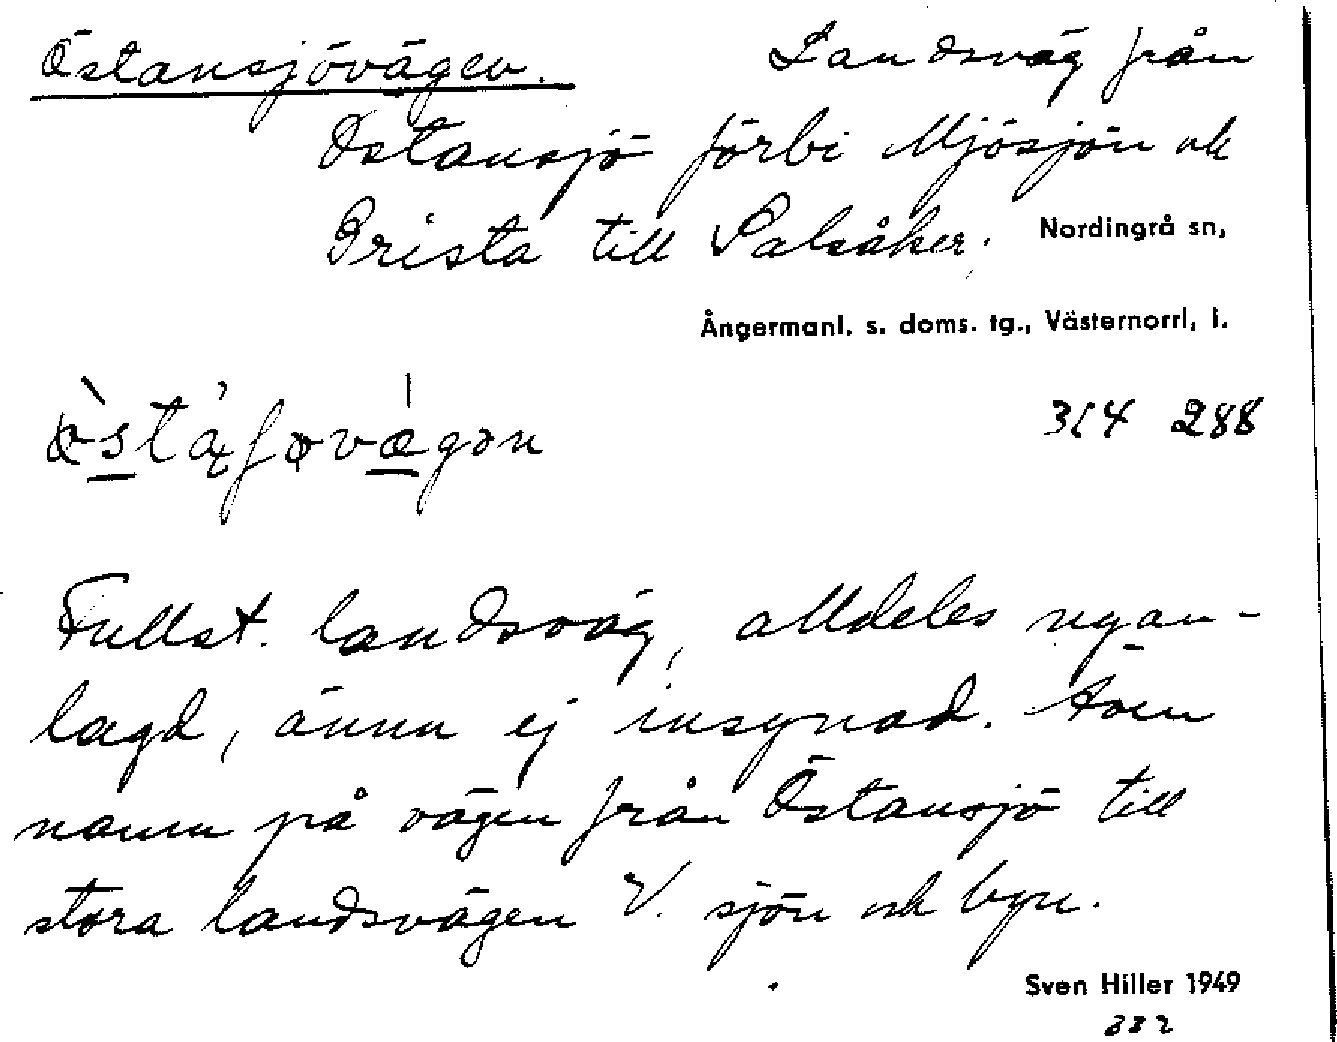 Östansjövägen. Landsväg från
Östansjö förbi Mjösjön och
Prista till Salsåker. Nordingrå sn,
Ångermanl. s. doms. tg., Västernorrl. l.
314 288
Fullst. landsväg, alldeles nyan-
lagd, ännu ej insynad. Även
namn på vägen från Östansjö till
stora landsvägen V. sjön och byn.
Sven Hiller 1949
332